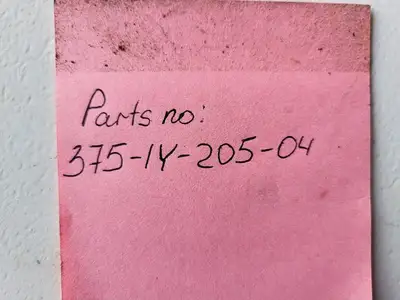 Parts no:
375-1Y-205-04